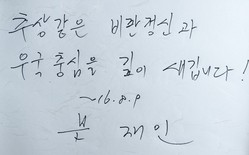 추상같은 비판정신과
우국충심을 깊이 새깁니다!
~16.8.9
문 재인